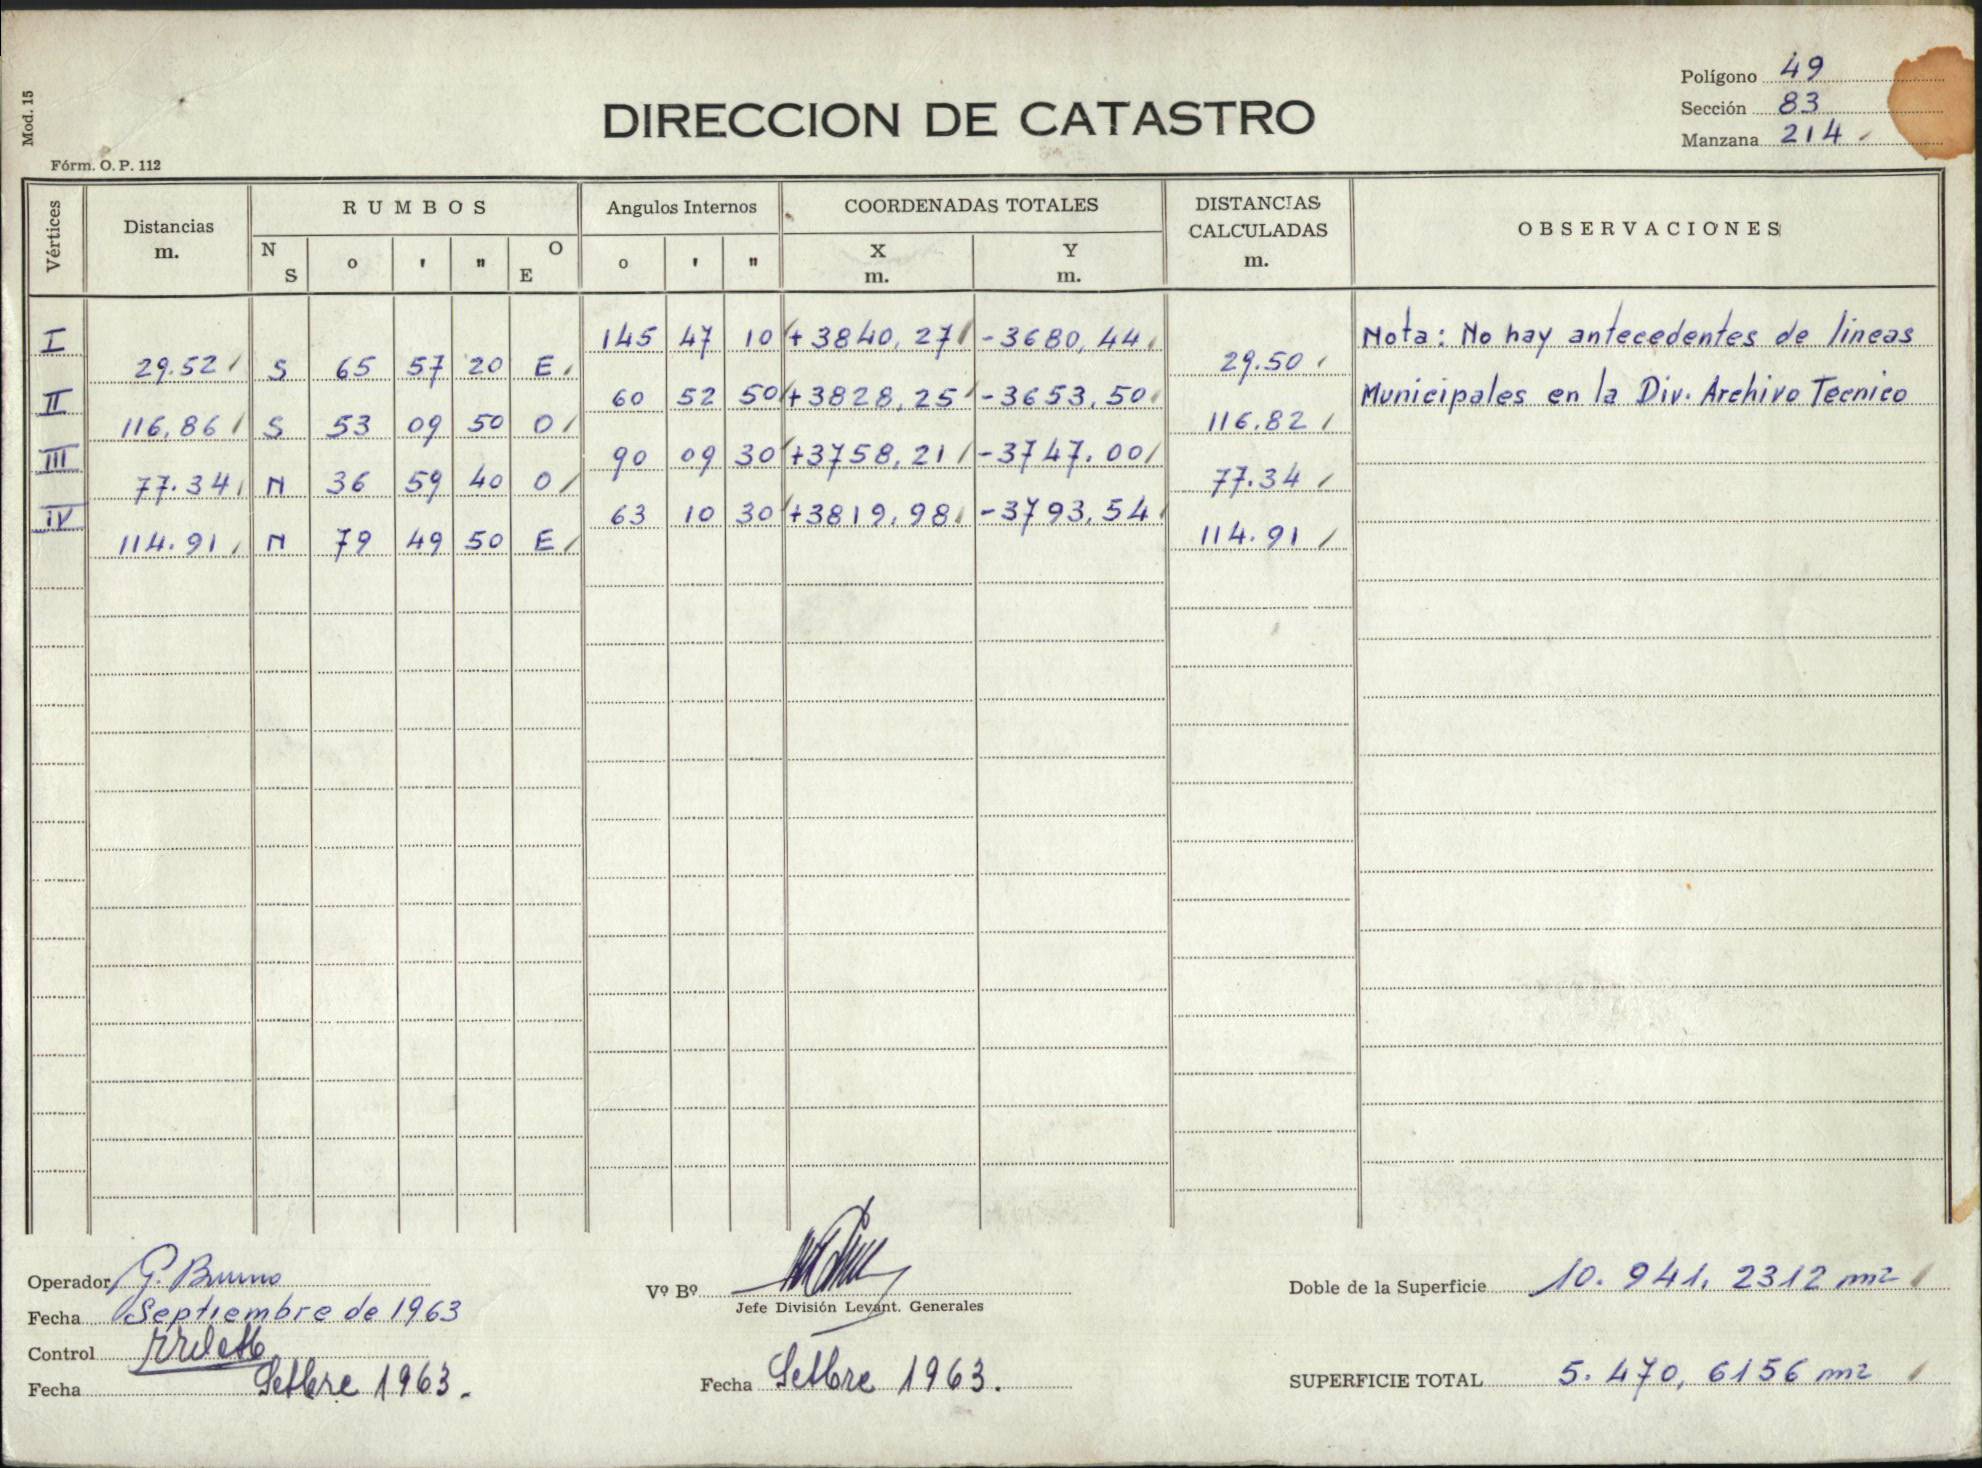 Mod. 15
Fórm. O. P. 112
DIRECCION DE CATASTRO
Polígono 49
Sección 83
Manzana 214
Vértices Distancias m. RUMBOS N S o ' " O E Angulos Internos o ' " COORDENADAS TOTALES X m. Y m. DISTANCIAS CALCULADAS m. OBSERVACIONES
I 145 47 10 +3840,27 -3680,44 Nota: No hay antecedentes de lineas
29.52 S 65 57 20 E 29.50
II 60 52 50 +3828,25 -3653,50 Municipales en la Div. Archivo Tecnico
116,86 S 53 09 50 O 116.82
III 90 09 30 +3758,21 -3747.00
77.34 N 36 59 40 O 77.34
IV 63 10 30 +3819,98 -3793,54
114.91 N 79 49 50 E 114.91
Operador G. Bruno
Fecha Septiembre de 1963
Control
Fecha Setbre 1963.
Vº Bº
Jefe División Levant. Generales
Fecha Setbre 1963.
Doble de la Superficie 10.941,2312 m2
SUPERFICIE TOTAL 5.470,6156 m2